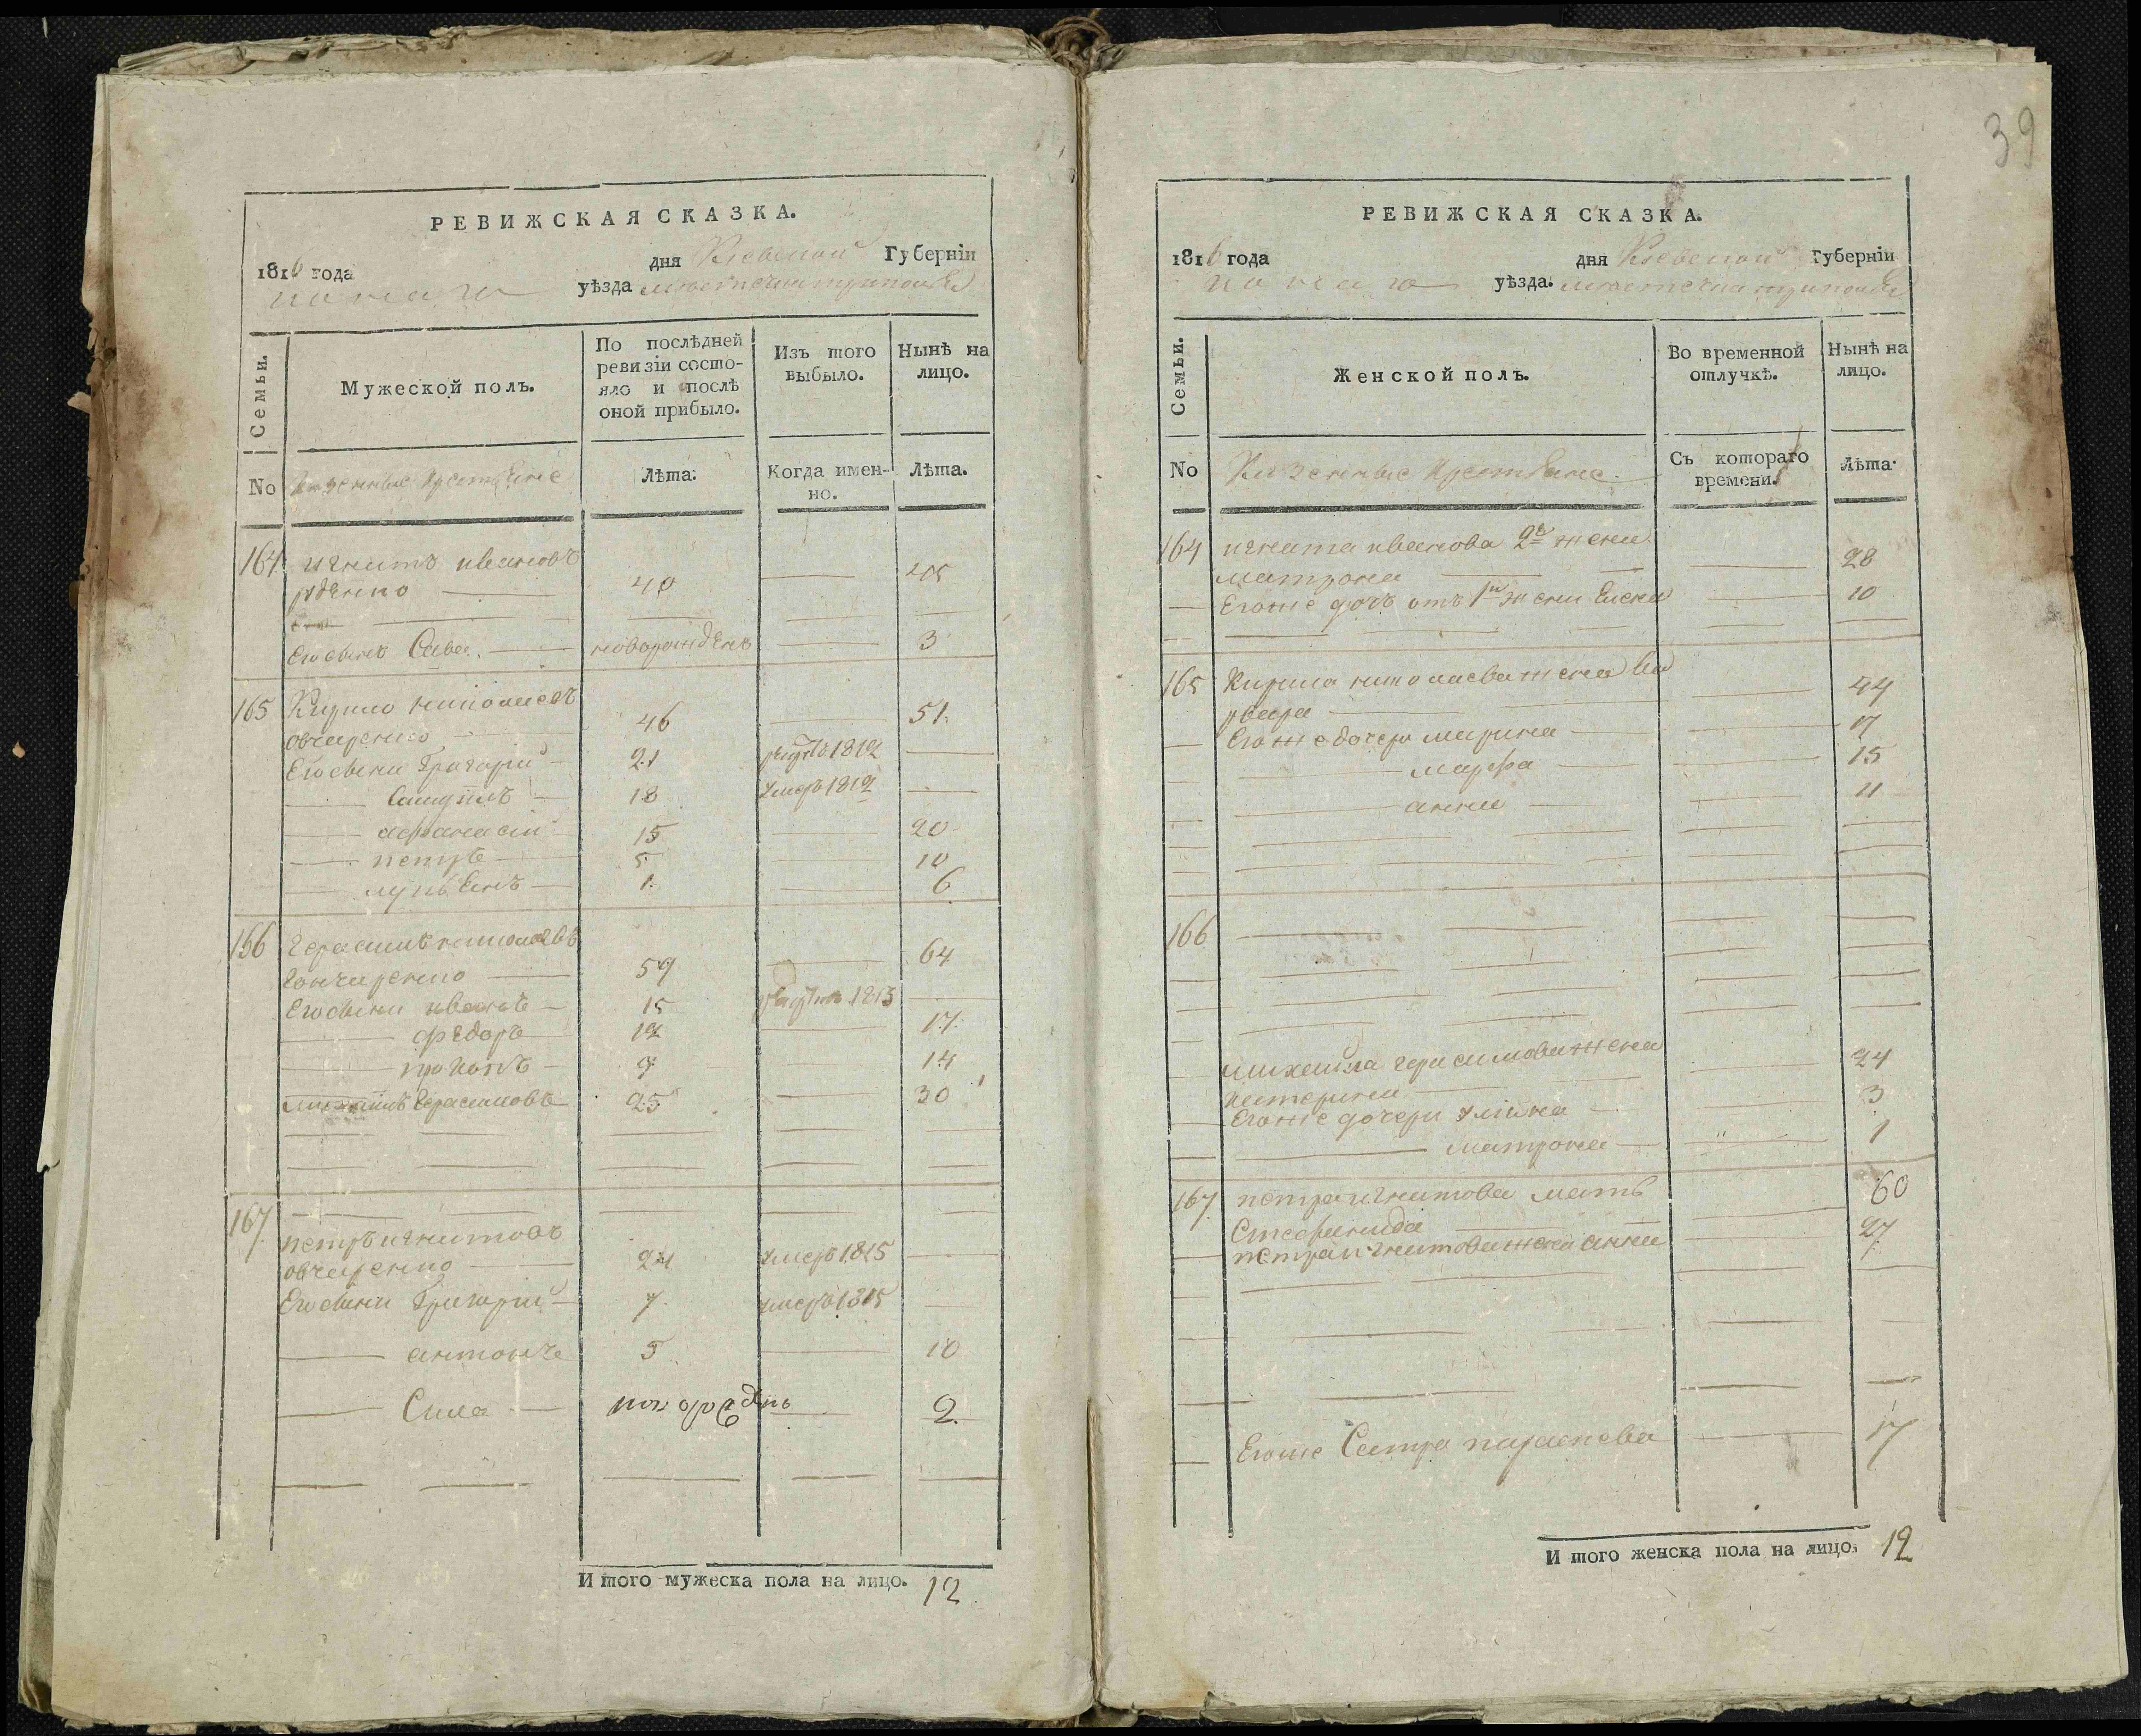 39
РЕВИЖСКАЯ СКАЗКА.
1816 года дня Киевской Губерніи
уѣзда местечка триполья
Семьи. Мужеской полъ. По послѣдней ревизіи состояло и послѣ оной прибыло. Изъ того выбыло. Нынѣ на лицо.
No казенные крестьяне Лѣта. Когда именно. Лѣта.
164 игнатъ ивановъ
40 45
Егосынъ Сава новорожденъ 3
165 Кирило николаевъ
овчаренко 46 51
Егосыни Григорій 21 1812
Самуилъ 18 умеръ 1812
афанасій 15 20
петръ 5 10
лукъянъ 1 6
166 Герасимъ николаевъ
Гончаренко 59 64
Егосыни иванъ 15 1813
федоръ 12 17
прокопъ 9 14
михаилъ Герасимовъ 25 30
167 петръ игнатовъ
овчаренко 24 умеръ 1815
Егосыни Григорій 7 умеръ 1815
антонъ 5 10
Сила 2
И того мужеска пола на лицо. 12
РЕВИЖСКАЯ СКАЗКА.
1816 года дня Киевской Губерніи
уѣзда. местечка триполья
Семьи. Женской полъ. Во временной отлучкѣ. Нынѣ на лицо.
No Казенные крестьяне Съ котораго времени. Лѣта.
164 игната иванова 2я жена
матрона 28
Егоже дочь отъ 1й жени Елена 10
165 Кирила николаева жена Ва
рвара 44
Егоже дочери марина 17
марфа 15
анна 11
166
михаила герасимова жена
катерина 24
Егоже дочери улiяна 3
матрона 1
167 петра игнатова мать
Стефанида 60
петра игнатова жена анна 27
Егоже Сестра параскева 17
И того женска пола на лицо. 12